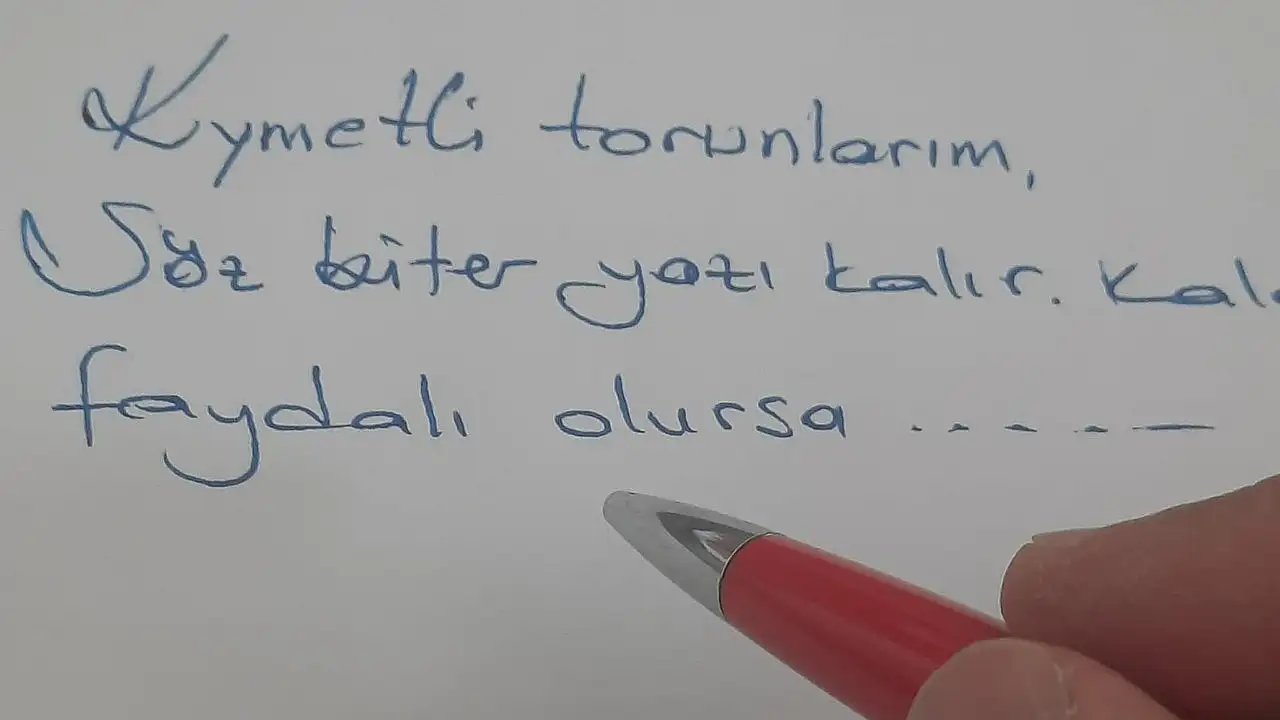 Kymetli torunlarım,
Söz biter yazı kalır. Kal
faydalı olursa ......—